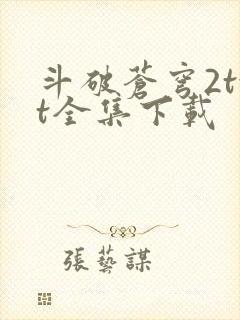 斗破蒼穹2t
t全集下載
張藝謀